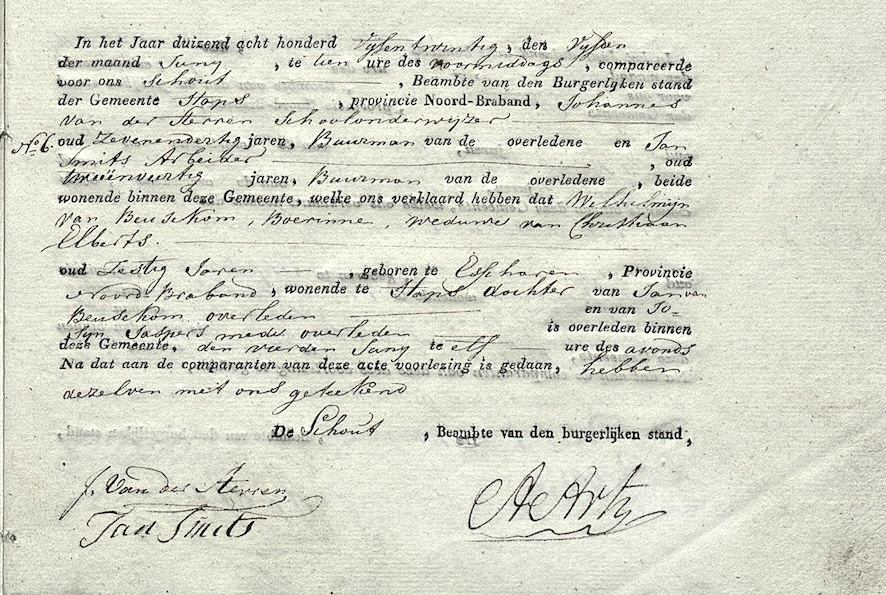 In het Jaar duizend acht honderd Vyfentwintig, den Vyfden
der maand Juny, te tien ure des voormiddags, compareerde
voor ons Schout, Beambte van den Burgerlyken stand
der Gemeente Haps, provincie Noord-Braband, Johannes
van der Sterren Schoolonderwyzer
No 6. oud Zevenendertig jaren, Buurman van de overledene en Jan
Smits Arbeider, oud
tweeënveertig jaren, Buurman van de overledene, beide
wonende binnen deze Gemeente, welke ons verklaard hebben dat Wilhelmyn
van Beusekom, Boerinne, weduwe van Christiaan
Elberts.
oud Zestig Jaren, geboren te Esscharen, Provincie
Noord Braband, wonende te Haps dochter van Jan van
Beusekom overleden en van Jo-
syn Jaspers mede overleden is overleden binnen
deze Gemeente, den vierden Juny te elf ure des avonds
Na dat aan de comparanten van deze acte voorlezing is gedaan, hebben
dezelven met ons geteekend
De Schout, Beambte van den burgerlyken stand,
J. Van der Sterren
Jan Smits
A Artz